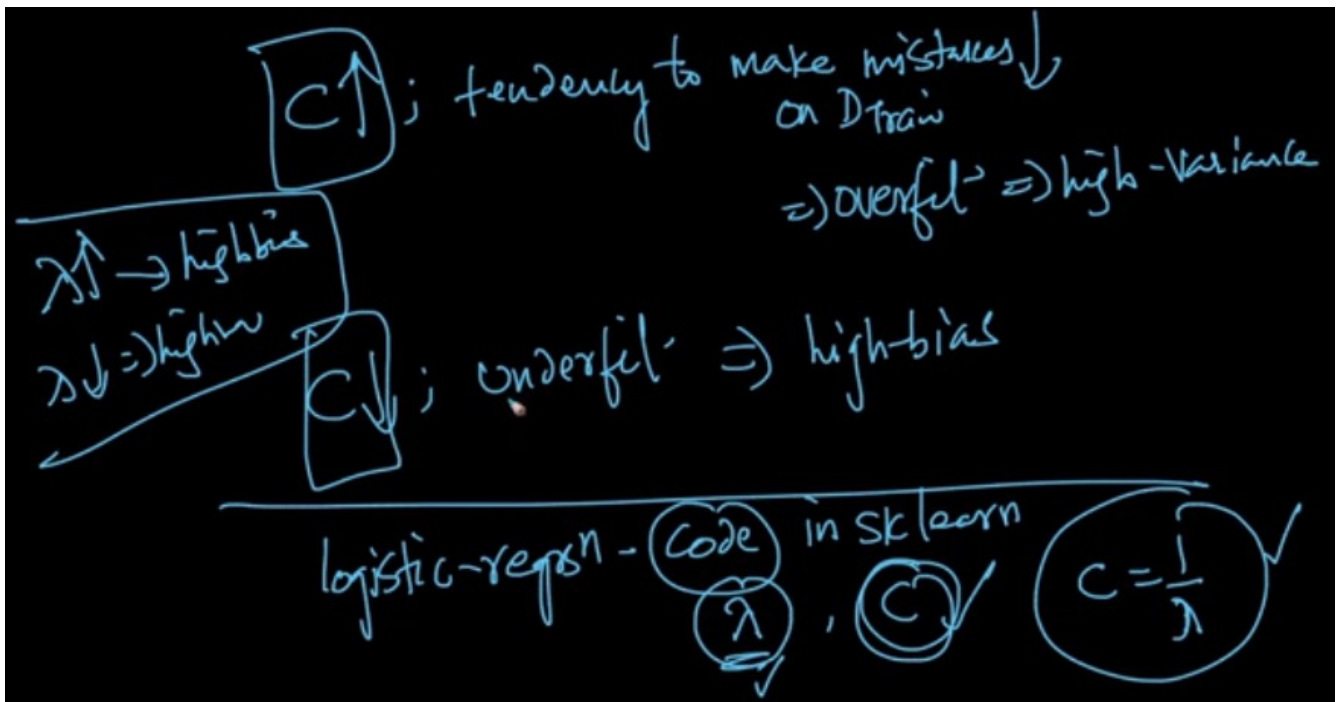 C↑ ; tendency to make mistakes ↓
on DTrain
=) overfit => high-variance
λ↑ → high bias
λ↓ =) high
C↓ ; underfit => high-bias
logistic-regrsn - Code in sklearn
λ , C ✓ C = 1/λ ✓
✓